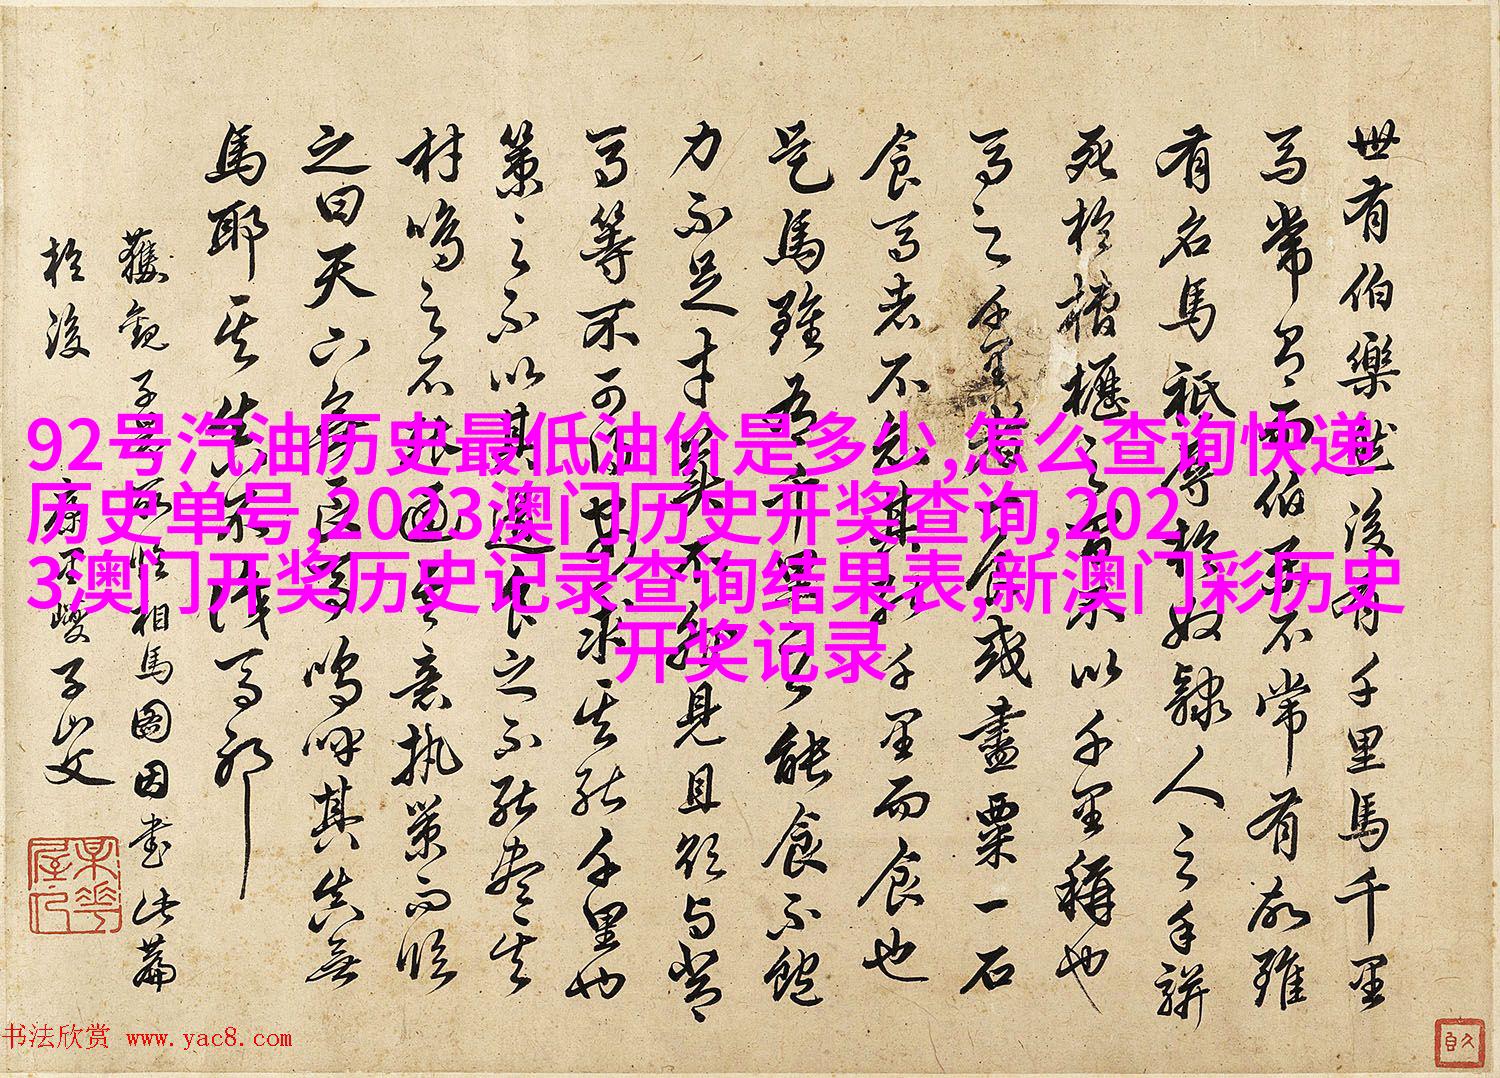 92号汽油历史最低油价是多少,怎么查询快递
历史单号,2023澳门历史开奖查询,202
3澳门开奖历史记录查询结果表,新澳门彩历史
开奖记录
世有伯樂然後有千里馬千里
馬常有而伯樂不常有故雖
有名馬祇辱於奴隸人之手駢
死於槽櫪之 以千里稱也
馬之千里者一食或盡粟一石
食馬者不知其能千里而食也
是馬雖有千里之能食不飽
力不足才美不外見且欲與常
馬等不可得安求其能千里也
策之不以其道食之不能盡其
材鳴之不能通其意執策而臨
之曰天下無良馬嗚呼其真無
馬耶其真不識馬耶
獲觀子昂所 相馬圖因書此篇
於後 康里巎子山父
书法欣赏 www.yac8.com